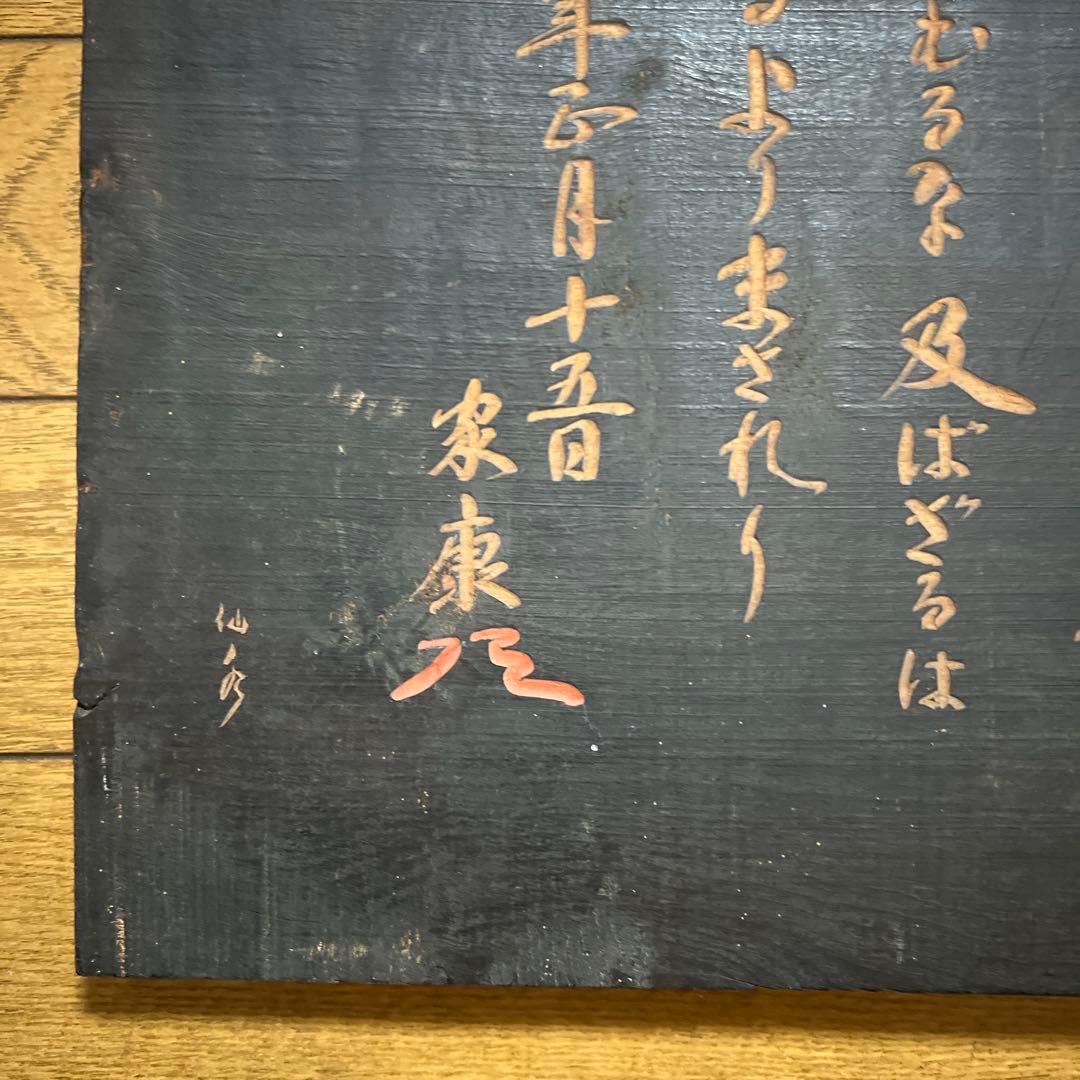 むるな 及ばざるは
るよりまされり
年正月十五日
家康
仙秀